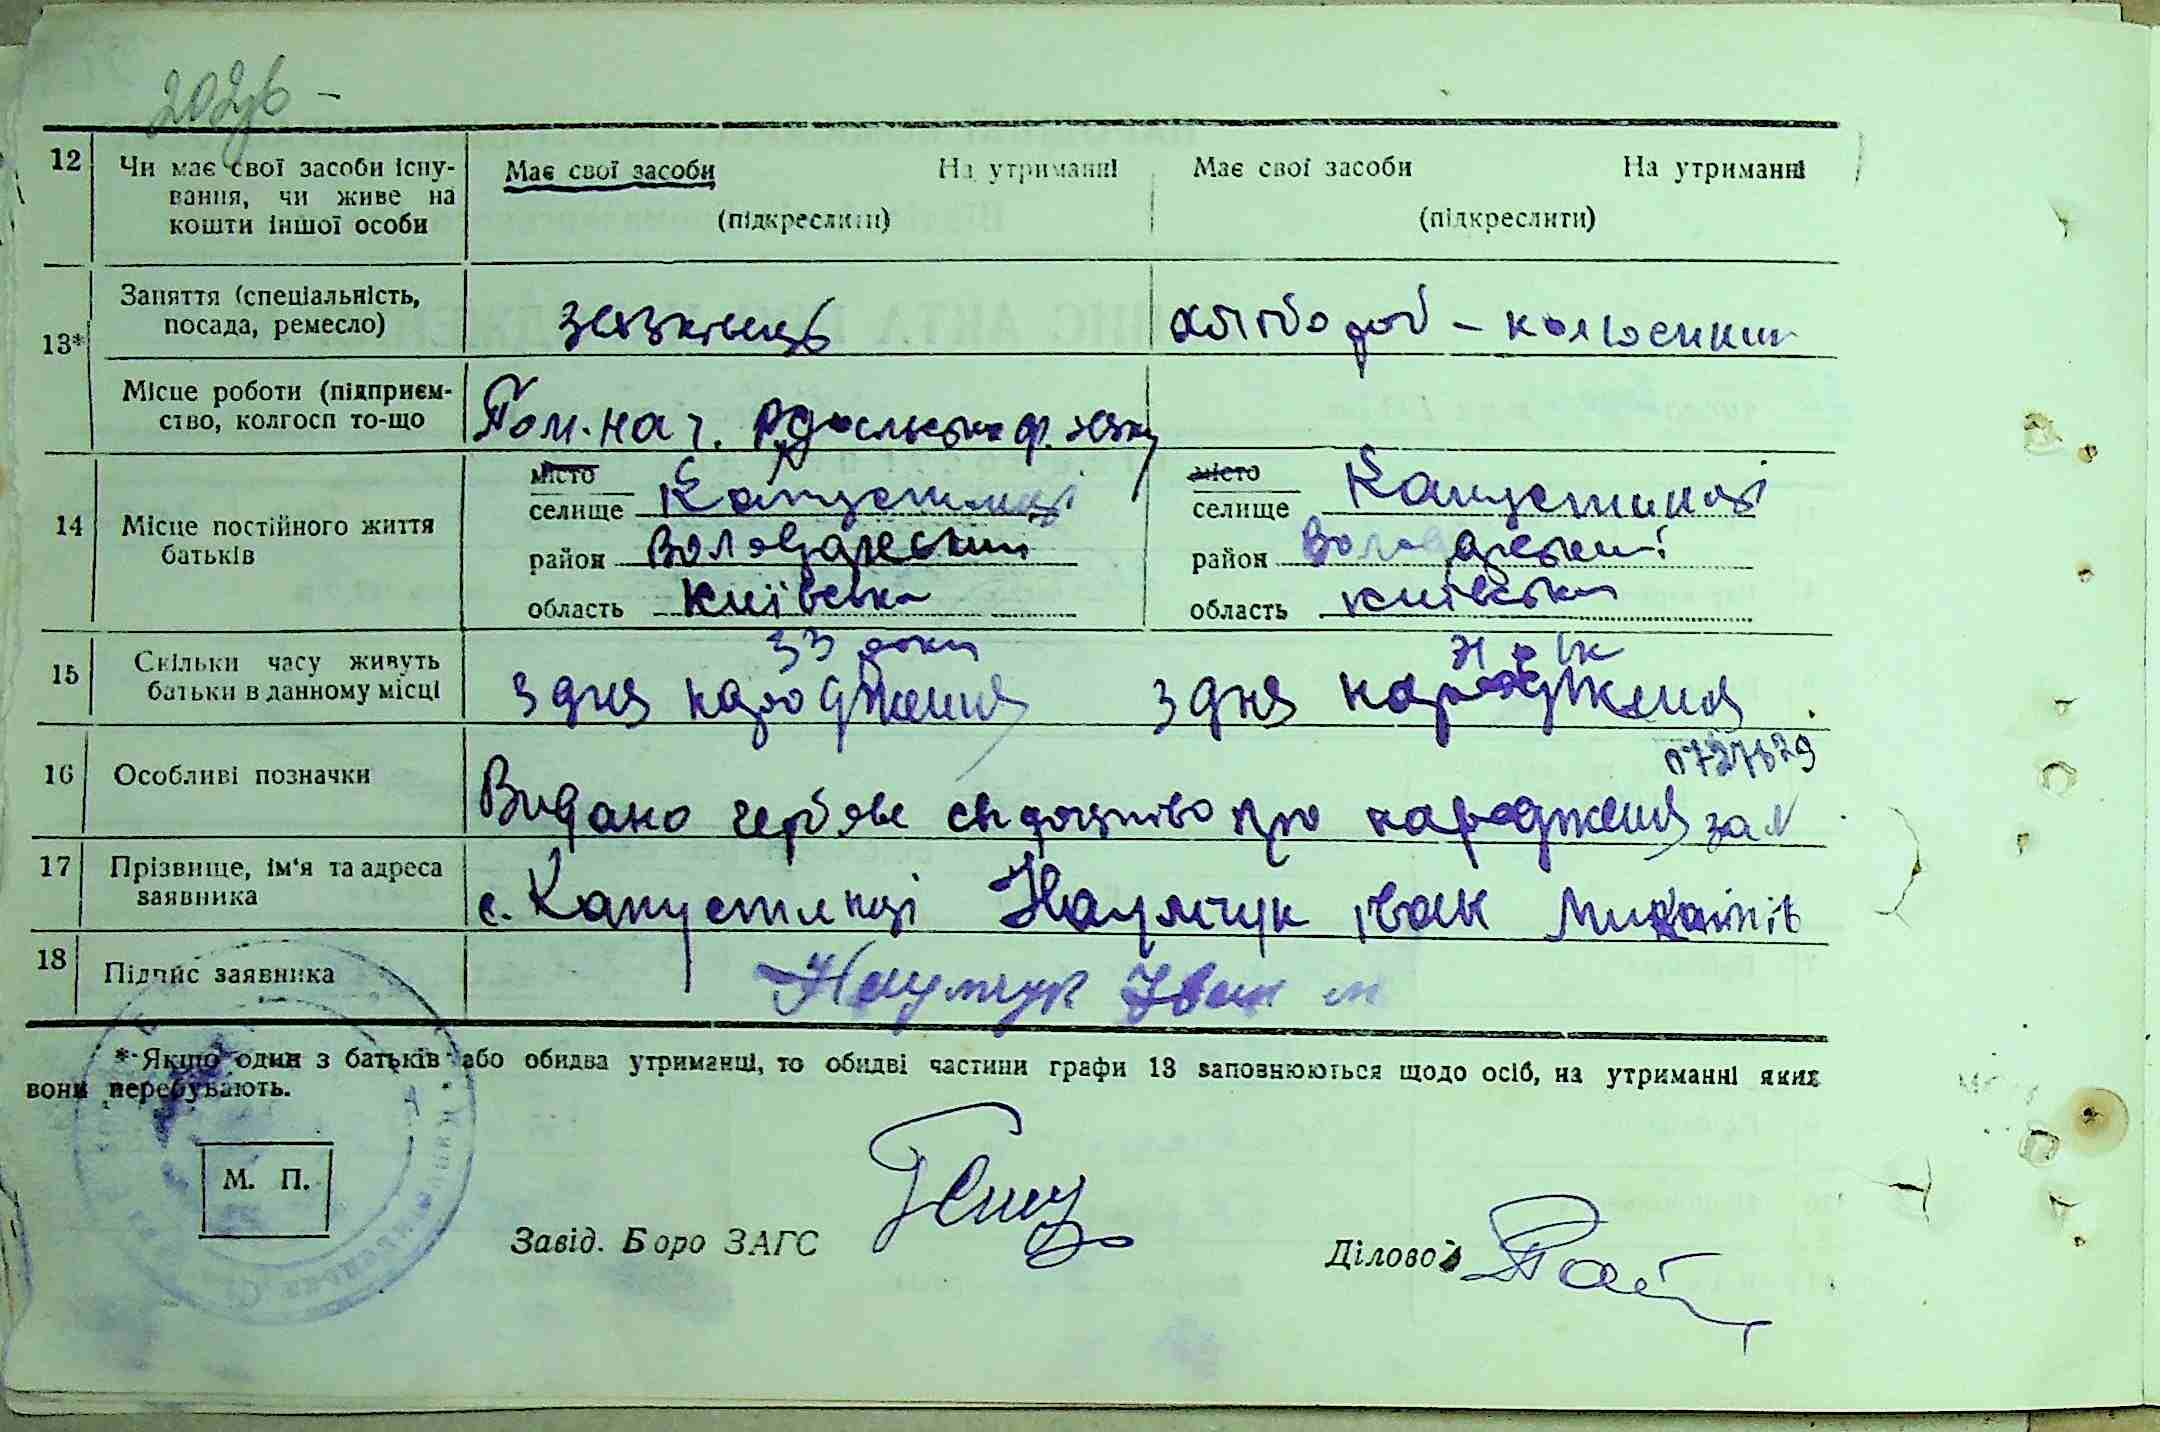 202
12 Чи має свої засоби існу- Має свої засоби На утриманні Має свої засоби На утриманні
вання, чи живе на (підкреслити) (підкреслити)
кошти іншої особи
13* Заняття (спеціальність, хлібороб - колгоспник
посада, ремесло)
Місце роботи (підприєм- Пом. нач.
ство, колгосп то-що
14 Місце постійного життя місто с. Капустинці місто с. Капустинці
батьків селище селище
район Володарський район Володарський
область Київська область Київська
15 Скільки часу живуть 33 роки 31 рік
батьки в данному місці з дня народження з дня народження
16 Особливі позначки 0727629
Видано гербове свідоцтво про народження за №
17 Прізвище, ім'я та адреса с. Капустинці Наумчук Іван Михайлів
заявника
18 Підпис заявника Наумчук Іван М
* Якщо один з батьків або обидва утриманці, то обидві частини графи 13 заповнюються щодо осіб, на утриманні яких
вони перебувають.
М. П.
Завід. Боро ЗАГС Діловод